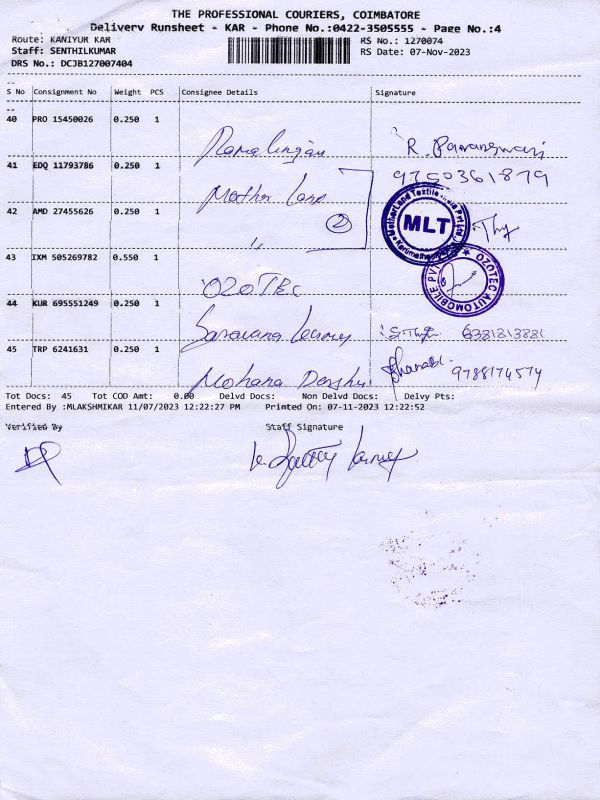 THE PROFESSIONAL COURIERS, COIMBATORE
Delivery Runsheet - KAR - Phone No.:0422-3505555 - Page No.:4
Route: KANIYUR KAR
RS No.: 1270074
Staff: SENTHILKUMAR
RS Date: 07-Nov-2023
DRS No.: DCJB127007404
S No Consignment No Weight PCS Consignee Details Signature
40 PRO 15450026 0.250 1
Ramalingam R.
41 EDQ 11793786 0.250 1
9750361879
Mother Land
42 AMD 27455626 0.250 1
2
MLT
"
43 IXM 505269782 0.550 1
OZOTEC
OZOTEC AUTOMOBILE PVT
44 KUR 695551249 0.250 1
Saravana Kumar 6381813881
45 TRP 6241631 0.250 1
Mohana 9788174574
Tot Docs: 45 Tot COD Amt: 0.00 Delvd Docs: Non Delvd Docs: Delvy Pts:
Entered By :MLAKSHMIKAR 11/07/2023 12:22:27 PM Printed On: 07-11-2023 12:22:52
Verified By Staff Signature